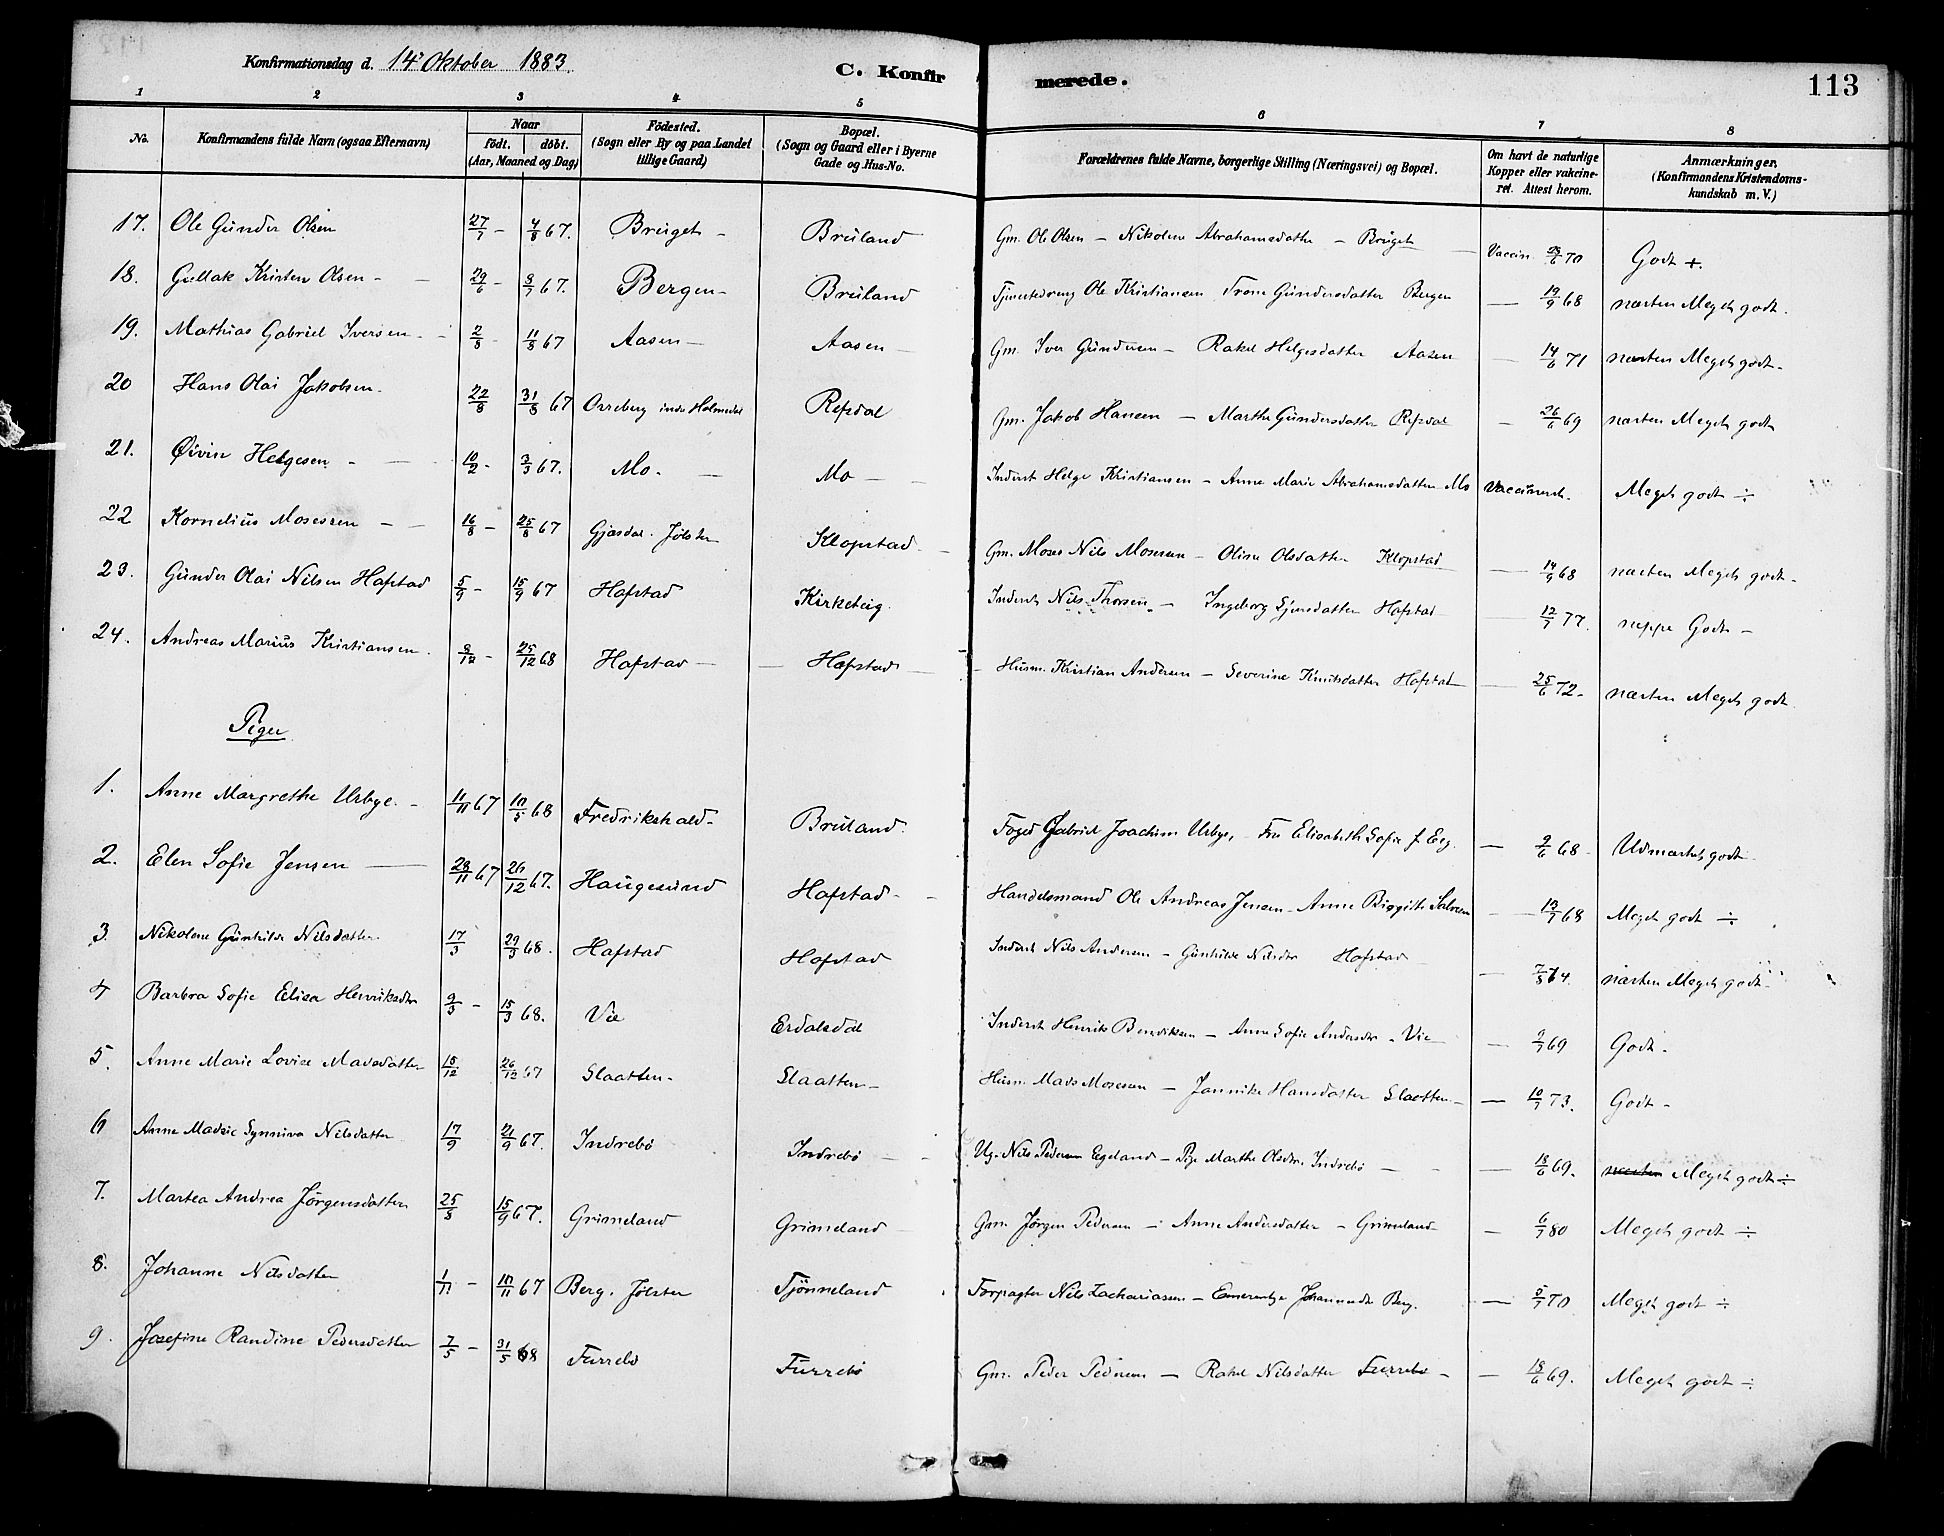 Konfirmationsdag d. 14de Oktober 1883.
C. Konfirmerede.
113
1 2 3 4 5 6 7 8
No. Konfirmandens fulde Navn (ogsaa Efternavn) Naar födt. döbt. (Aar, Maaned og Dag) Födested. (Sogn eller By og paa Landet tillige Gaard) Bopæl. (Sogn og Gaard eller i Byerne Gade og Hus-No. Forældrenes fulde Navne, borgerlige Stilling (Næringsvei) og Bopæl. Om havt de naturlige Kopper eller vakcineret. Attest herom. Anmærkninger, (Konfirmandens Kristendomskundskab m. V.)
17. Ole Gunder Olsen 27/7 – 4/8 67. Bruget – Bruland Gm. Ole Olsen – Nikoline Abrahamsdatter – Bruget Vaccin. 23/6 70 Godt +.
18. Gullak Kristen Olsen – 29/6 – 8/7 67. Bergen – Bruland Tjenestedreng Ole Kristiansen Gundersdatter Bergen – 19/9 68 næsten Meget godt.
19. Mathias Gabriel Iversen – 2/8 – 11/8 67 Aasen – Aasen – Gm. Iver Gundersen – Rakel Helgesdatter Aasen – 14/6 71 næsten Meget godt –
20 Hans Olai Jakobsen – 22/8 31/8 67 Osseberg indre Holmedal Refsdal Gm. Jakob Hansen – Marthe Gundersdatter Refsdal – 26/6 69 næsten Meget godt
21. Øivin Helgesen – 10/2 – 3/3 67. Mo – Mo – Inderst Helge Kristiansen – Anne Marie Abrahamsdatter Mo Vaccineret. Meget godt ÷
22 Kornelius Mosessen – 16/8 – 25/8 67 Gjesdal. Jølster Klopstad – Gm. Moses Nils Mosesen – Oline Olsdatter Klopstad – 14/9 68 næsten Meget godt –
23. Gunder Olai Nilsen Hafstad 5/9 – 15/9 67 Hafstad Kirketeig. Inderst Nils Thorsen – Ingeborg Hafstad – 12/7 77. neppe Godt –
24. Andreas Marius Kristiansen. 8/12 – 25/12 68 Hafstad – Hafstad – Husm. Kristian Andersen – Severine Knutsdatter Hafstad – 25/6 72 – næsten Meget godt
Piger
1. Anne Margrethe Urbye. – 11/11 67 10/5 68 Fredrikshald – Bruland. Foged Gabriel Joachim Urbye, Fru Elisabeth Sofie f. – 9/6 68 – Udmærket godt
2. Elen Sofie Jensen – 28/11 67 26/12 67. Haugesund Hafstad – Handelsmand Ole Andreas Jensen – Anne Birgith – 13/7 68 Meget godt ÷
3. Nikoline Gunhilde Nilsdatter 17/3 29/3 68. Hafstad Hafstad Inderst Nils Andersen – Gunhilde Nilsdr Hafstad – 7/8 74. næsten Meget godt –
4 Barbra Sofie Elisa Henriksdtr 9/3 – 15/3 68. Vie Erdalsdal Inderst Henrik Bendiksen – Anne Sofie Andersdr – Vie – 9/7 69 Godt –
5. Anne Marie Lovise Madsdatter 15/12 26/12 67 Slaatten – Slaatten – Husm. Mads Mosesen – Jannike Hansdatter Slaatten – 10/7 73. Godt –
6 Anne Madzie Synniva Nilsdatter 17/9 21/9 67. Indrebö Indrebö – Ug. Nils Pedersen Egeland – Pige Marthe Olsdr. Indrebö – 18/6 69. næsten Meget godt ÷
7. Martea Andrea Jørgensdatter 25/8 15/9 67. Grimeland Grimeland Gm. Jørgen Pedersen – Anne Andersdatter – Grimeland – 6/7 80 Meget godt ÷
8. Johanne Nilsdatter 1/11 – 10/11 67 Berg. Jølster Tjönneland Forpagter Nils Zachariassen – Johannesdr Berg. – 5/7 70 Meget godt ÷
9. Josefine Randine Pedersdatter 7/5 – 31/5 68 Furrebö Furrebö Gm. Peder Pedersen – Rakel Nilsdatter Furrebö – – 18/6 69. Meget godt ÷